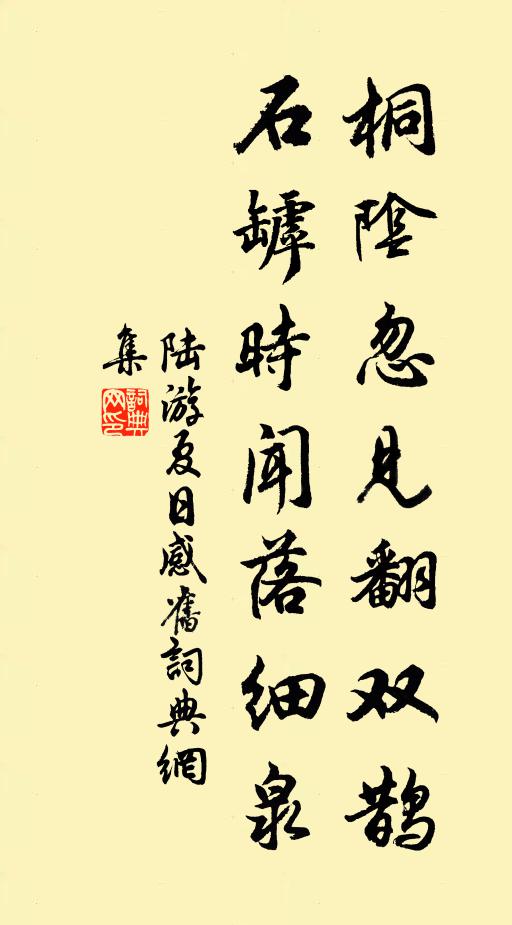 桐陰忽见翻双鹊
石罅時闻落细泉
陆游夏日感舊詞典網
集
詞典网印